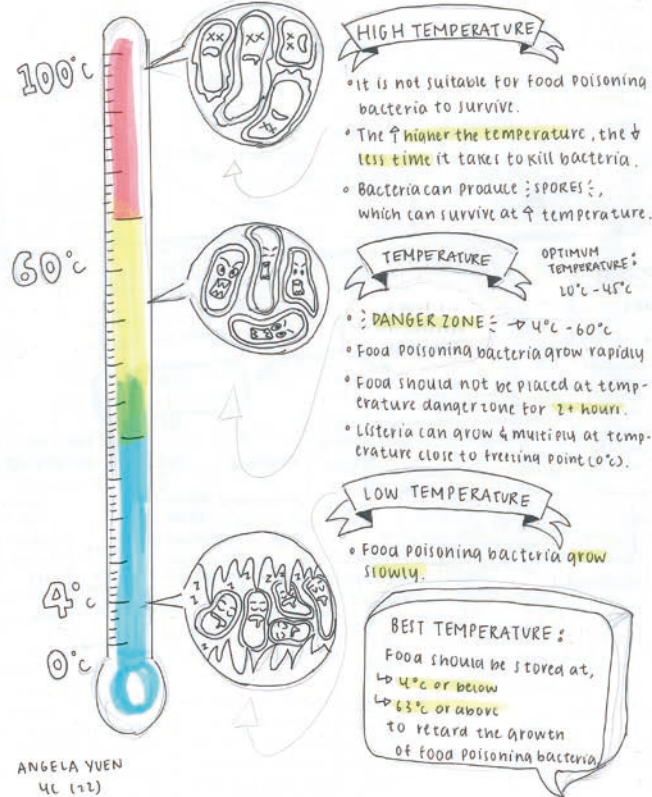 100°c
60°c
4°c
0°c
HIGH TEMPERATURE
• It is not suitable for food poisoning
bacteria to survive.
• The ↑ higher the temperature, the ↓
less time it takes to kill bacteria.
• Bacteria can produce SPORES,
which can survive at ↑ temperature.
TEMPERATURE
OPTIMUM
TEMPERATURE:
20°c - 45°c
• DANGER ZONE → 4°c - 60°c
• Food poisoning bacteria grow rapidly
• Food should not be placed at temp-
erature danger zone for 2+ hours.
• Listeria can grow & multiply at temp-
erature close to freezing point (0°c).
LOW TEMPERATURE
• Food poisoning bacteria grow
slowly.
z z z z z
BEST TEMPERATURE:
Food should be stored at,
↳ 4°c or below
↳ 63°c or above
to retard the growth
of food poisoning bacteria
ANGELA YUEN
4C (22)